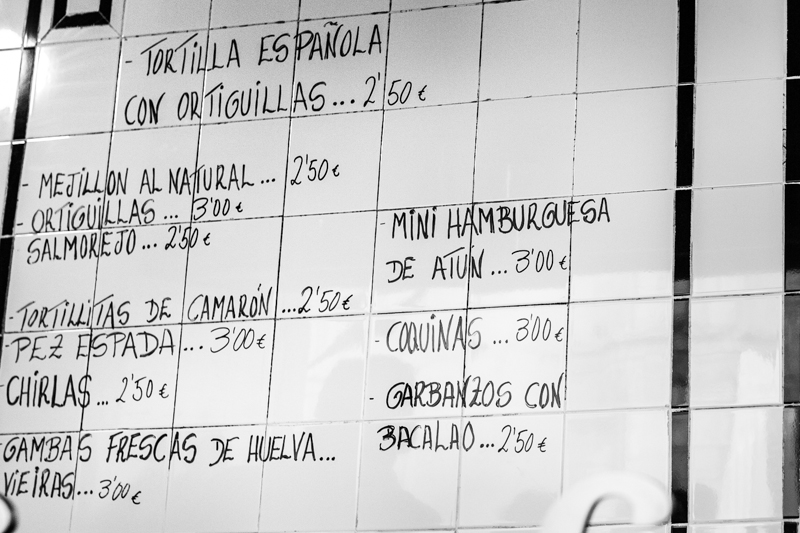 - TORTILLA ESPAÑOLA
CON ORTIGUILLAS... 2'50 €
- MEJILLON AL NATURAL... 2'50 €
- ORTIGUILLAS... 3'00 €
SALMOREJO... 2'50 €
- TORTILLITAS DE CAMARÓN ...2'50 €
- PEZ ESPADA ... 3'00 €
- CHIRLAS... 2'50 €
GAMBAS FRESCAS DE HUELVA...
VIEIRAS... 3'00 €
- MINI HAMBURGUESA
DE ATÚN... 3'00 €
- COQUINAS ... 3'00 €
- GARBANZOS CON
BACALAO... 2'50 €